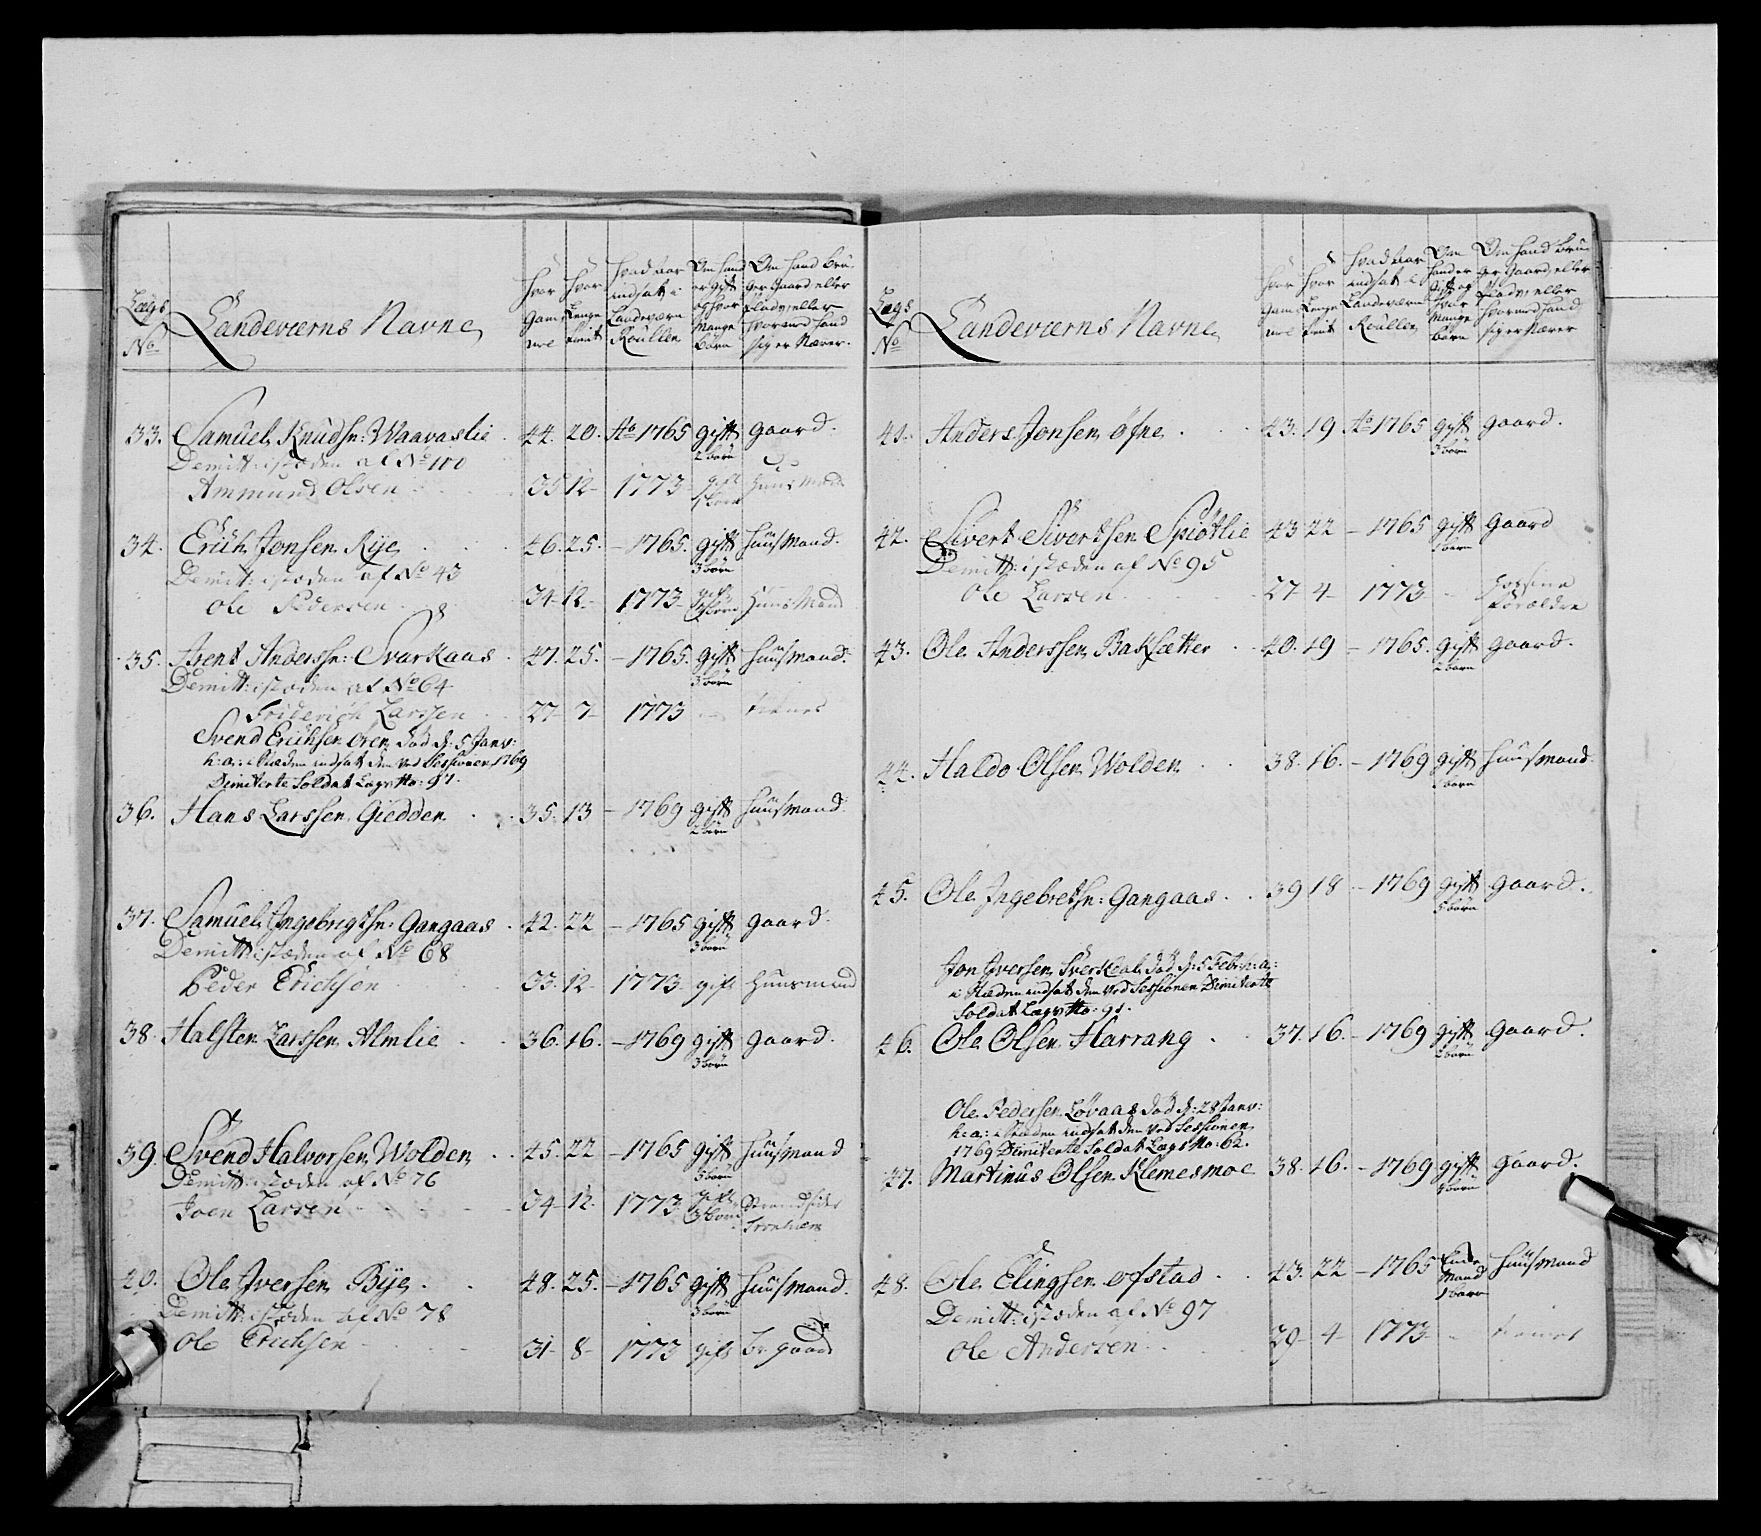 Lægs No
Landeværns Navne
Hvor Gam̄el
Hvor Lenge tient
Hvad aar indsat i Landeværn Roullen
Om hand er gift og hvor mange børn
Om hand bruger Gaard eller Plads, eller hvormed hand sig er Nærer.
33. Samuel Knudsn: Waavaslie 44. 20. Ao 1765 gift 2 børn gaard.
Demitt: i stæden af No 100
Ammund Olsen 35 12 - 1773 - gift Huus Mand
34. Erich Jonsen Rye 46. 25. - 1765. gift 3 børn huusmand.
Demitt: i stæden af No 43
Ole Pedersen 34 - 12 - 1773 - gift Huus Mand
35. Arent Anderssn: Svarkaas 47. 25. - 1765. gift 3 børn huusmand.
Demitt: i stæden af No 64
Friderich Larssen 27 - 7 - 1773 - tiener
Svend Erichsen Øren død d: 5 Janv:
h: a: i stæden indsat den ved Sessionen 1769
Dimiterte Soldat Lægs No: 97.
36. Hans Larssen Giedden 35. 13 - 1769 gift 2 børn huusmand.
37. Samuel Ingebrigtsn: Gangaas 42. 22 - 1765 gift 3 børn gaard.
Demitt: i stæden af No 68
Peder Erichsen 33 - 12 - 1773 - gift Huusmand
38. Halsten Larssen Almlie 36. 16. - 1769 gift 3 børn gaard.
39. Svend Halvorsen Wolden 45. 22 - 1765 gift 3 børn huusmand
Demitt: i stæden af No 76
Joen Larsen 34 - 12. 1773 - gift 3 børn Strandsider Tronhiem
40. Ole Iversen Bye 48. 25. - 1765 gift 3 børn huusmand.
Demitt: i stæden af No 78
Ole Erichsen 31 - 8 - 1773 gift br. gaard
Lægs No
Landeværns Navne
Hvor Gam̄el
Hvor Lenge tient
Hvad aar indsat i Landeværn Roullen
Om hand er gift og hvor mange børn
Om hand bruger Gaard, eller Plads, eller hvormed hand sig er Nærer
41. Anders Jonsen Øfne 43. 19 Ao 1765 gift 3 børn gaard.
42. Sivert Sivertsen Spiøtlie 43 22 - 1765 gift gaard
Demitt: i stæden af No 95
Ole Larsen 27 - 4 - 1773 - hos sine Forældre
43. Ole Anderssen Baksætter 40. 19 - 1765. gift 2 børn gaard.
44. Haldo Olsen Wolden 38. 16. - 1769 gift huusmand.
45. Ole Ingebretsn: Gangaas 39 18 - 1769 gift 5 børn gaard.
Jon Iversen død d: 5 Febr: h: a:
i stæden indsat den ved Sessionen Dimiterte
Soldat Lægs No: 91.
46. Ole Olsen Harrang 37. 16. - 1769 gift 2 børn gaard.
Ole Pedersen Løvaas død d: 28 Janv:
h: a: i stæden indsat den ved Sessionen
1769 Dimiterte Soldat Lægs No: 62.
47. Martinus Olsen Klemesmoe 38. 16. - 1769 gift gaard.
48. Ole Elingsen Ofstad 43. 22 - 1765 Enke Mand 1 barn huusmand
Demitt: i stæden af No 97
Ole Andersen 29 - 4 - 1773 - tiener